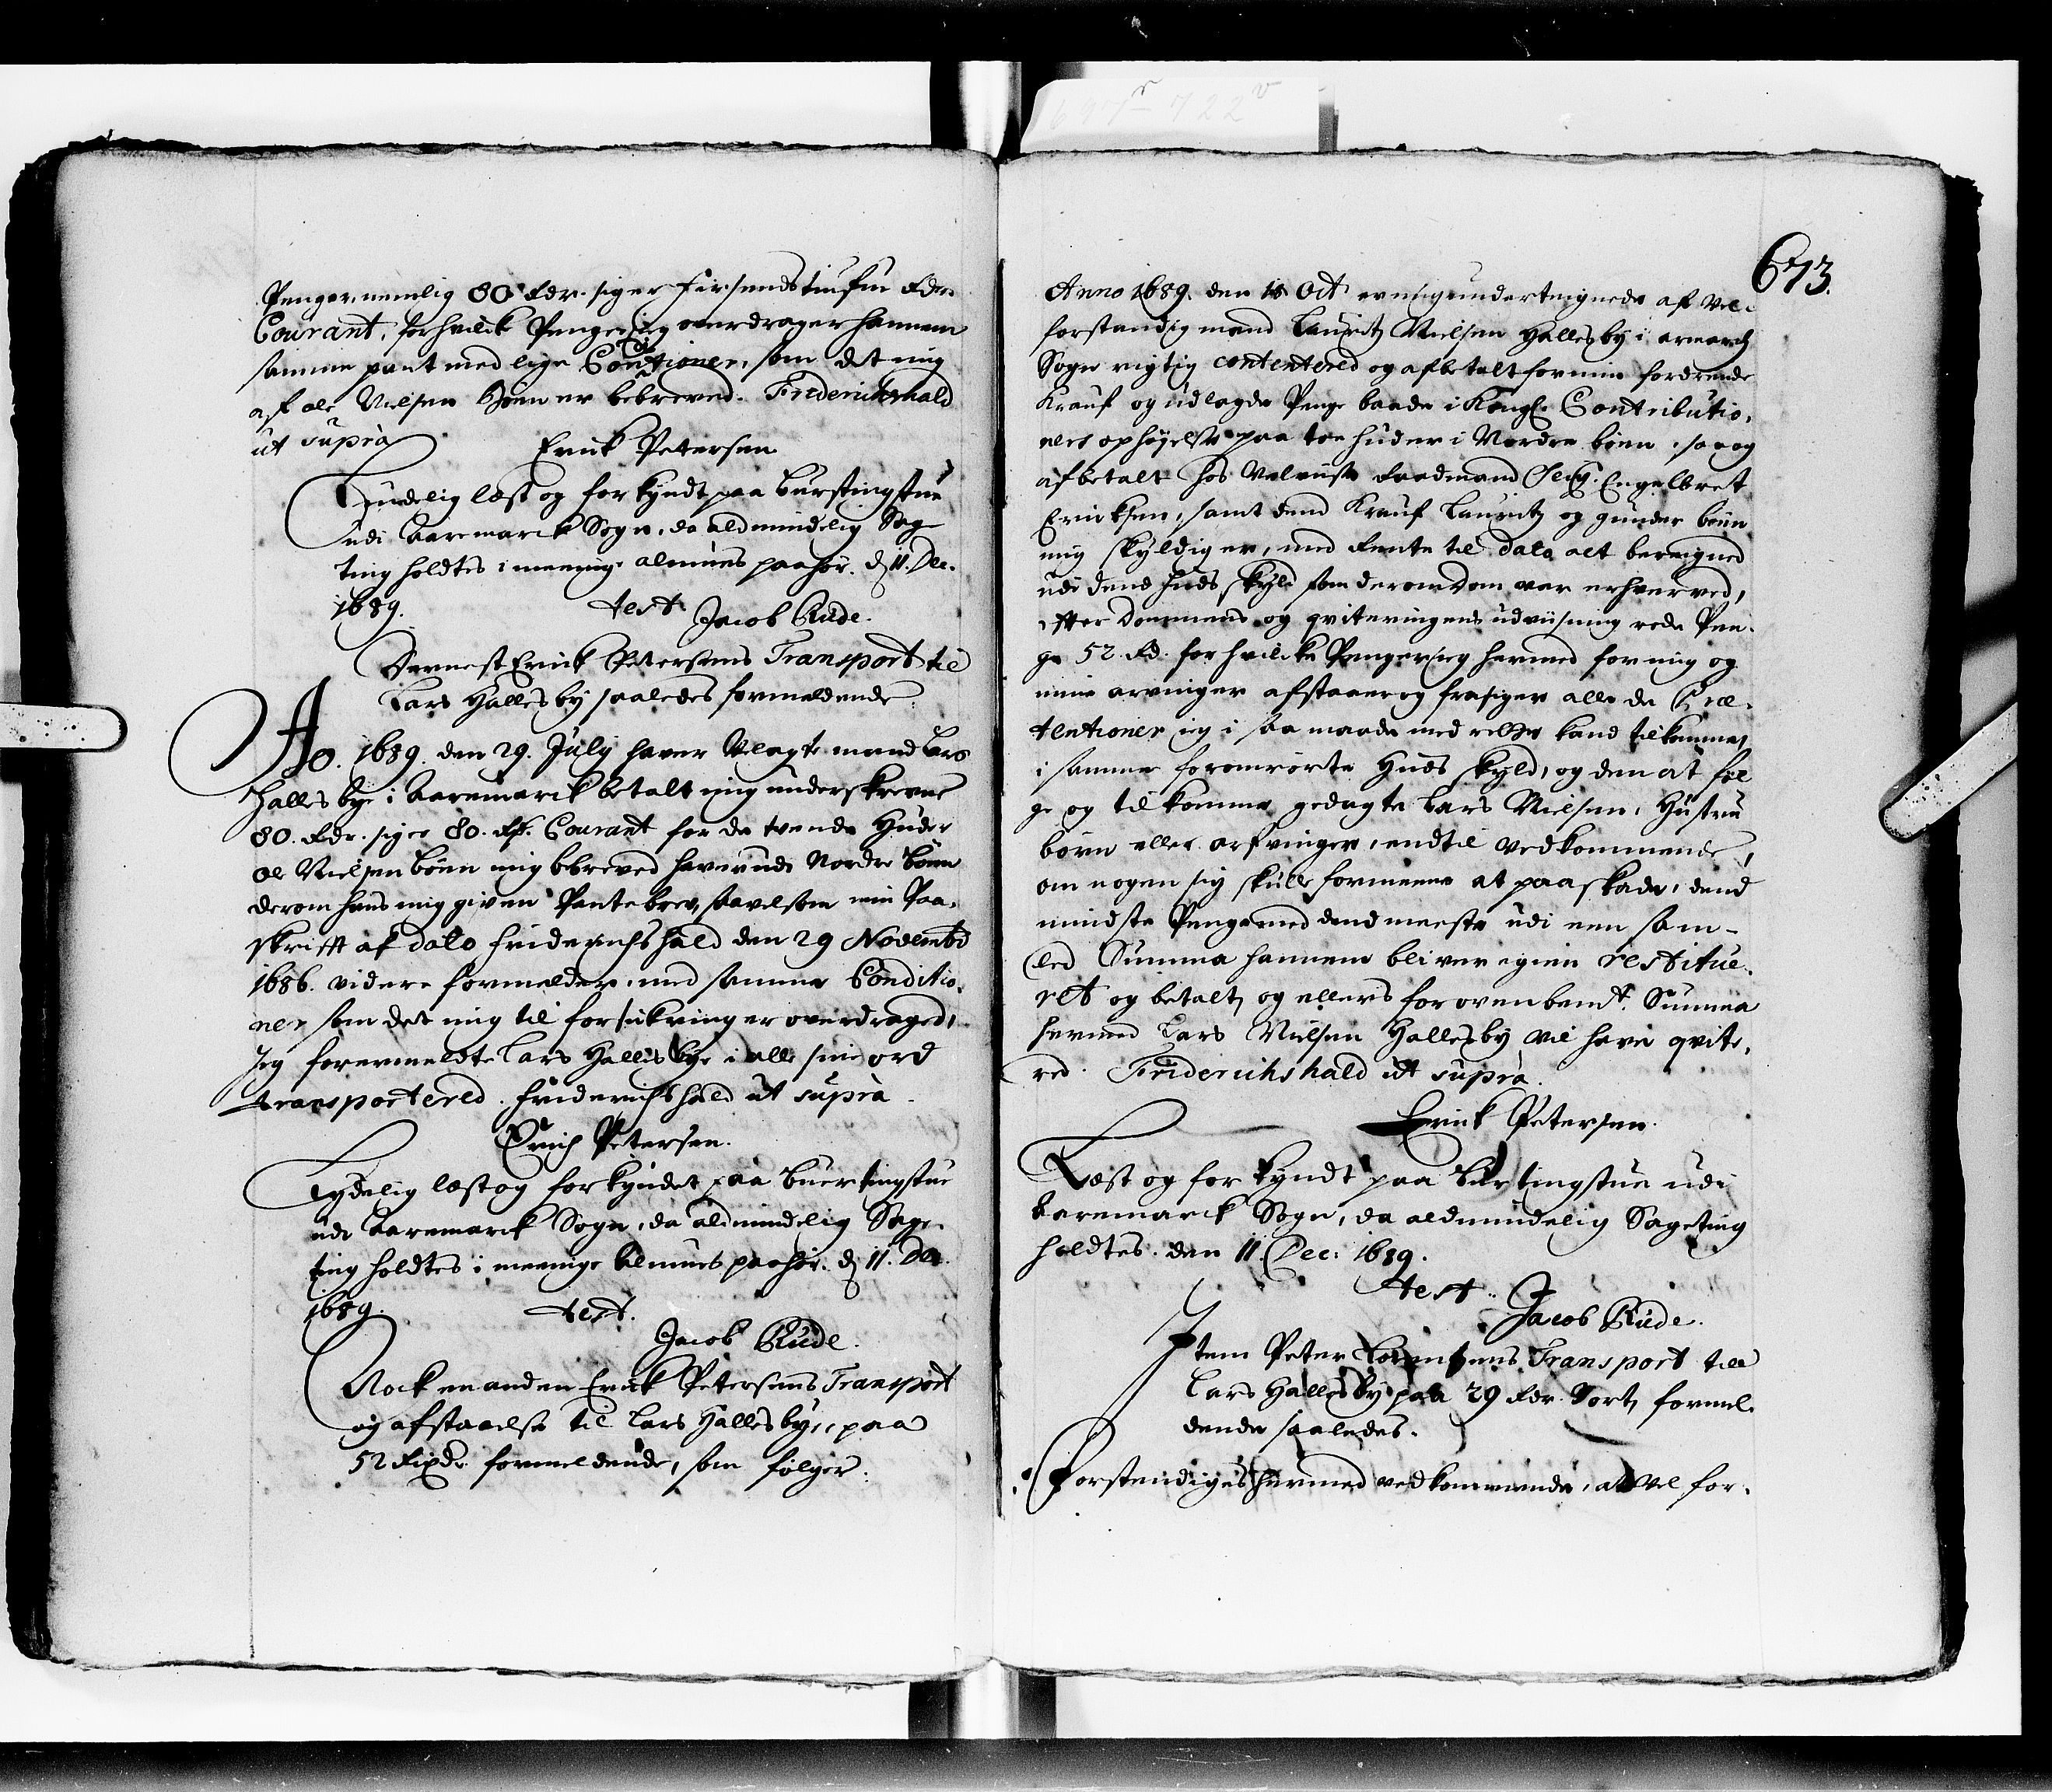 Penger, nemlig 80 Rdr. siger firsindstiufue Rdr.
Courant, for hvilck Penger jeg overdrager hannem
samme pant med lige Conditioner, som det mig
af ole Nielsen bøen er bebreved. Friderichshald
ut supra
Erick Petersen
Tudelig læst og forkyndt paa burstingstue
udi Aaremarck Sogn, da aldmindelig Sage
ting holdtes i meenige almues paahør. d. 11. Dec.
1689. test. Jacob Rude.
Dernest Erick Petersens Transport til
Lars Hallesby saaledes formeldende:
Ao. 1689. den 29. July haver Velagte mand Lars
Hallesbye i Aaremarck betalt mig underskrevne
80. Rdr. siger 80. Rdr. Courant for de tvende Huder
ole Nielsen bøen mig bbreved haver udi Nordre bøen
derom hans mig given Pantebrev, saavelsom min Paa-
skrifft af dato friderichshald den 29 Novembr
1686. videre formelder, med samme Conditio-
ner som det mig til forsikring er overdraged,
Jeg forermeldte Lars Hallesbye i alle sine ord
transportered. friderichshald ut supra.
Erich Petersen.
Tydelig læst og forkyndet paa buertingstue
udi Aaremarck Sogn, da aldmindelig Sage-
ting holdtes i meenige almues paahør. d. 11. Dec.
1689. test.
Jacob Rude.
Nock en anden Erick Petersens Transport
og afstaaelse til Lars Hallesbye, paa
52 Rixdr. formeldende, som følger:
673.
Anno 1689. den 18 Oct er mig underteignede af Vel-
forstandig mand Lauritz Nielsen Hallesby i aremarch
Sogn rigtig contentered og afbetalt for min fordrende
Krauf og udlagde Penge baade i Kongl. Contributio-
ners ophøyelse paa toe huder i Nordre bøen, saa og
afbetalt hos Velviise Raadmand Sl. Engelbret
Ericksen, samt dend Krauf Lauritz og gunder bøen
mig skyldig er, med Rente til dato alt beregned
udi dend huds skyld som derom dom var erhverved,
efter dommens og qviteringens udviisning rede Pen-
ge 52 Rd. for hvilcke Penger jeg hermed for mig og
mine arvinger afstaaer og frasiger alle de Præ-
tentioner jeg i saa maade med rette kand tilkomme
i samme foromrørte Huds skyld, og den at føl-
ge og tilkomme gedagte Lars Nielsen, Hustru
børn eller arfvinger, endtil vedkommende,
om nogen sig skulle formeene at paaskade, dend
mindste Penge med dend meeste udi een sam-
led Summa hannem bliver igien restitue-
ret og betalt, og ellers for ovenbemt. Summa
hermed Lars Nielsen Hallesby vil have qvite-
red. Friderichshald ut supra.
Erick Petersen.
Læst og forkyndt paa burtingstue udi
Aaremarck Sogn, da aldmindelig Sageting
holdtes. den 11 Dec: 1689.
test.
Jacob Rude.
Item Peter Lorentzens Transport till
Lars Hallesby paa 29 Rdr. 3 ort, formel-
dende saaledes.
Forstendiges hermed vedkommende, at Vel for-